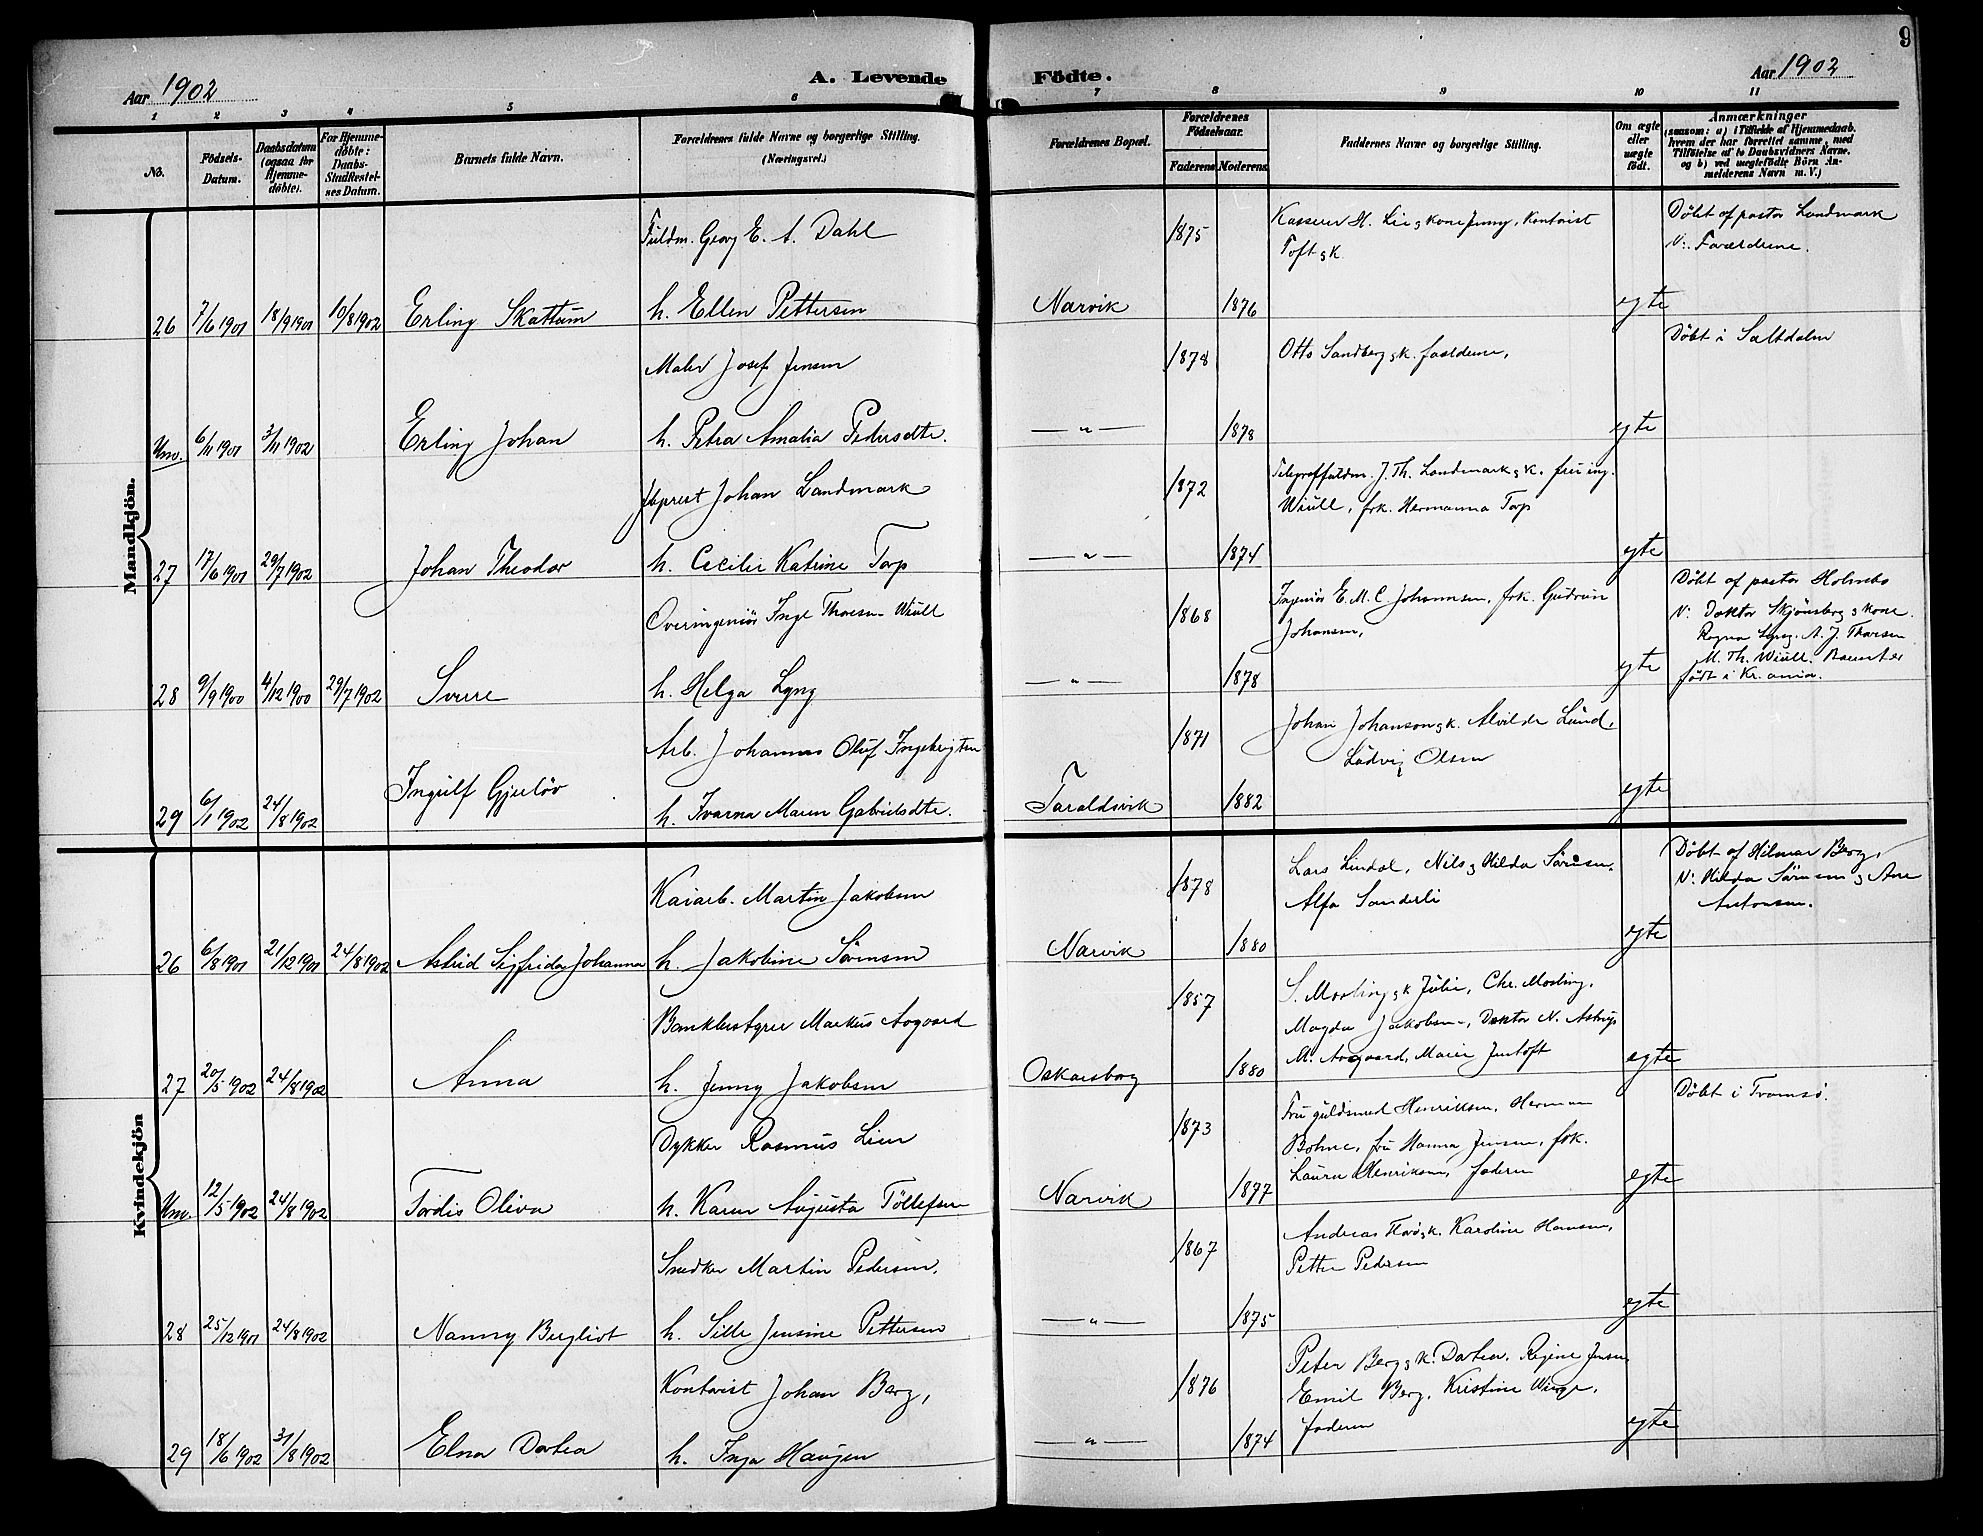 9
Aar 1902
A. Levende Födte.
Aar 1902
1 2 3 4 5 6 7 8 9 10 11
No.
Födsels-Datum.
Daabsdatum (ogsaa for Hjemmedöbte).
For Hjemmedöbte: Daabs-Stadfestelses Datum.
Barnets fulde Navn.
Forældrenes fulde Navne og borgerlige Stilling.
(Næringsvei.)
Forældrenes Bopæl.
Forældrenes Födselsaar.
Faderens Moderens
Faddernes Navne og borgerlige Stilling.
Om ægte eller uægte födt.
Anmærkninger
(saasom: a) i Tilfælde af Hjemmedaab.
hvem der har forrettet samme, med
Tilföielse af to Daabsvidners Navne.
og b) ved uægtefödte Börn An-
melderens Navn m. V.)
Mandkjön.
Fuldm. Georg E. A. Dahl
1875
Kasserer H. Lie & kone Jenny, Kontorist
Toft & k.
Döbt af pastor Landmark
V: Forældrene.
26 7/6 1901 18/9 1901 10/8 1902 Erling Skattum h. Ellen Pettersen Narvik 1876 egte
Maler Josef Jensen
1878
Otto Sandberg & k. forældrene,
Döbt i Saltdalen
Um. 6/11 1901 3/11 1902 Erling Johan h. Petra Amalia Pedersdtr. — " — 1878 egte
Johan Landmark
1872
J. Th. Landmark & k. fru ing.
Wiull, frk. Hermanna Torp
27 17/6 1901 29/7 1902 Johan Theodor h. Cecilie Katrine Torp — " — 1874 egte
Overingeniör Inge Thoresen Wiull
1868
Ingeniör E. M. C. Johannsen, frk. Gudrun
Johansen,
Döbt af pastor Holmebo
V: Doktor Skjönsberg & kone
Ragna Lyng. A. J. Thoresen
M. Th. Wiull. Barnet er
födt i Kr.ania.
28 9/9 1900 4/12 1900 29/7 1902 Sverre h. Helga Lyng — " — 1878 egte
Arb. Johannes Oluf Ingebrigtsen
1871
Johan Johanson & k. Alvilde Lund,
Ludvig Olsen
29 6/1 1902 24/8 1902 Ingulf Gjulöv h. Ivarna Maren Gabrielsdtr. Taraldsvik 1882 egte
Kvindekjön
Kaiarb. Martin Jakobsen
1878
Lars Lindal, Nils & Hilda Sörensen.
Alfa Sanderli
Döbt af Hilmar Berg,
V: Hilda Sörensen & Ane
Antonsen.
26 6/8 1901 21/12 1901 24/8 1902 Astrid Sigfrida Johanna h. Jakobine Sörensen Narvik 1880 egte
Bankbestyrer Markus Aagaard
1857
S. Mosling & k Julie, Chr. Mosling,
Magda Jakobsen, Doktor N. Astrup
M. Aagaard, Marie Juntoft
27 20/5 1902 24/8 1902 Anna h. Jenny Jakobsen Oskarsborg 1880 egte
Dykker Rasmus Lien
1873
Fru guldsmed Henriksen, Herman
Bohne, fru Hanna Jensen, frk.
Laura Henriksen, faderen
Döbt i Tromsö.
Um. 12/5 1902 24/8 1902 Tordis Oliva h. Karen Augusta Tollefsen Narvik 1877 egte
Snedker Martin Pedersen.
1867
Andreas & k. Karoline Hansen,
Petter Pedersen
28 25/12 1901 24/8 1902 Nanny Bergliot h. Sille Jensine Pettersen — " — 1875 egte
Kontorist Johan Berg,
1876
Peter Berg & k. Dortea, Regine Jensen,
Emil Berg, Kristine Winge,
faderen
29 18/6 1902 31/8 1902 Elna Dortea h. Inga Haugen — " — 1874 egte